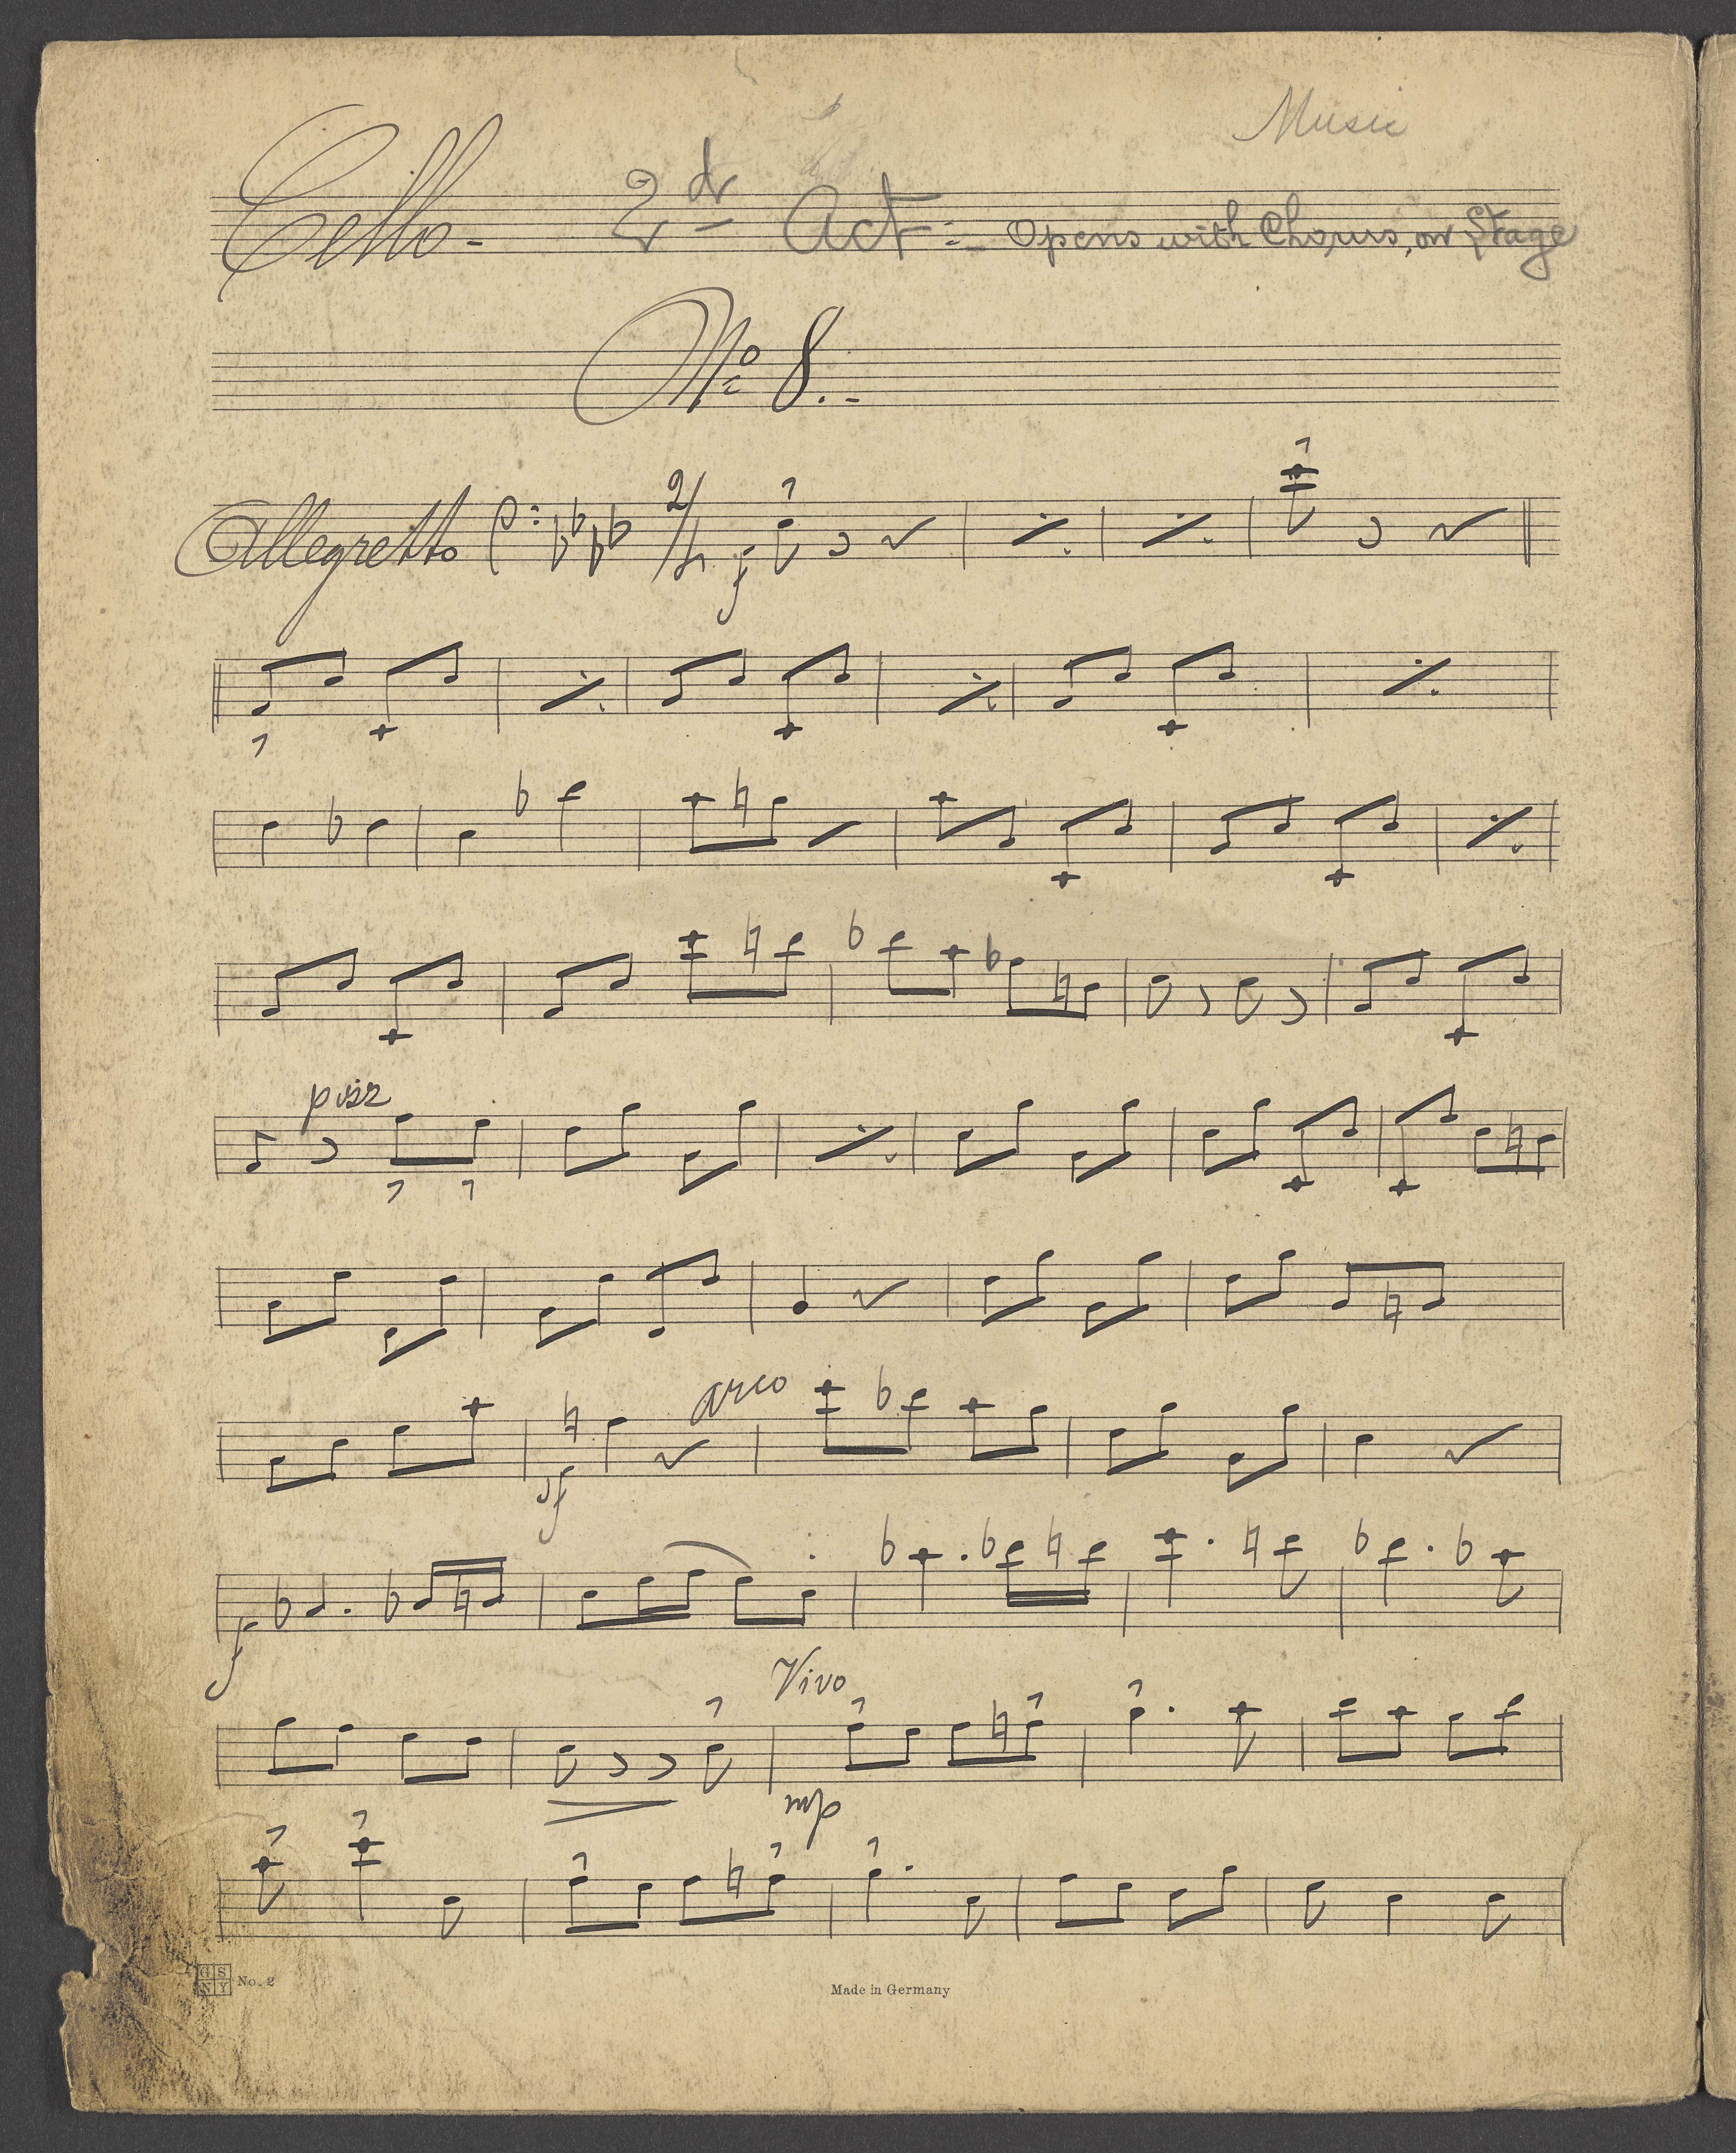 Music
Cello - 2dr Act :- Opens with Chorus, on Stage
No 8.-
Allegretto 2/4 f
pizz
arco
sf
f
Vivo
mp
G S N Y No. 2
Made in Germany